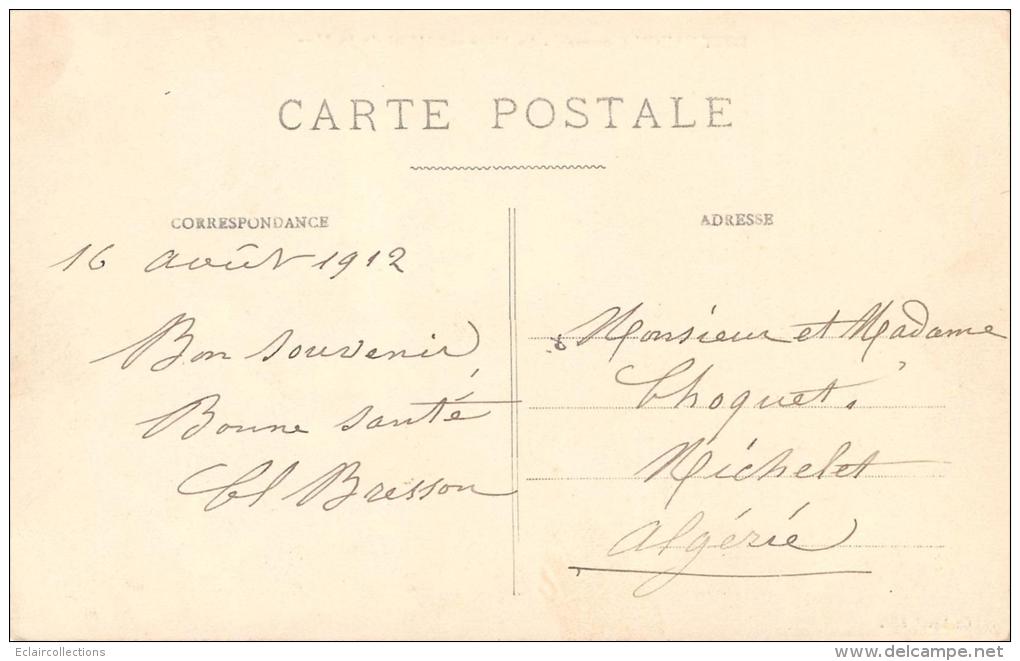 CARTE POSTALE
CORRESPONDANCE
16 août 1912
Bon souvenir
Bonne santé
Cl Bresson
ADRESSE
Monsieur et Madame
Choquet
Michelet
Algérie
Eclaircollections
delcampe.net